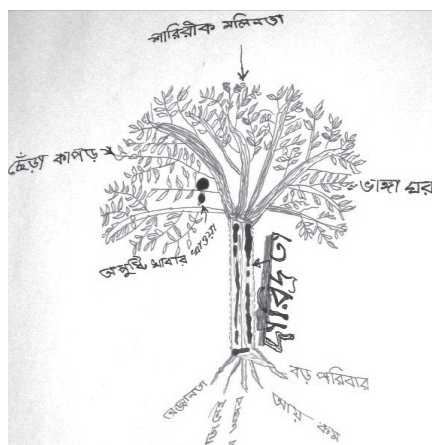 শারিরীক মলিনতা
ছেঁড়া কাপড়
ভাঙ্গা ঘর
অপুষ্টি খাবার খাওয়া
দারিদ্রতা
বড় পরিবার
আয় কম